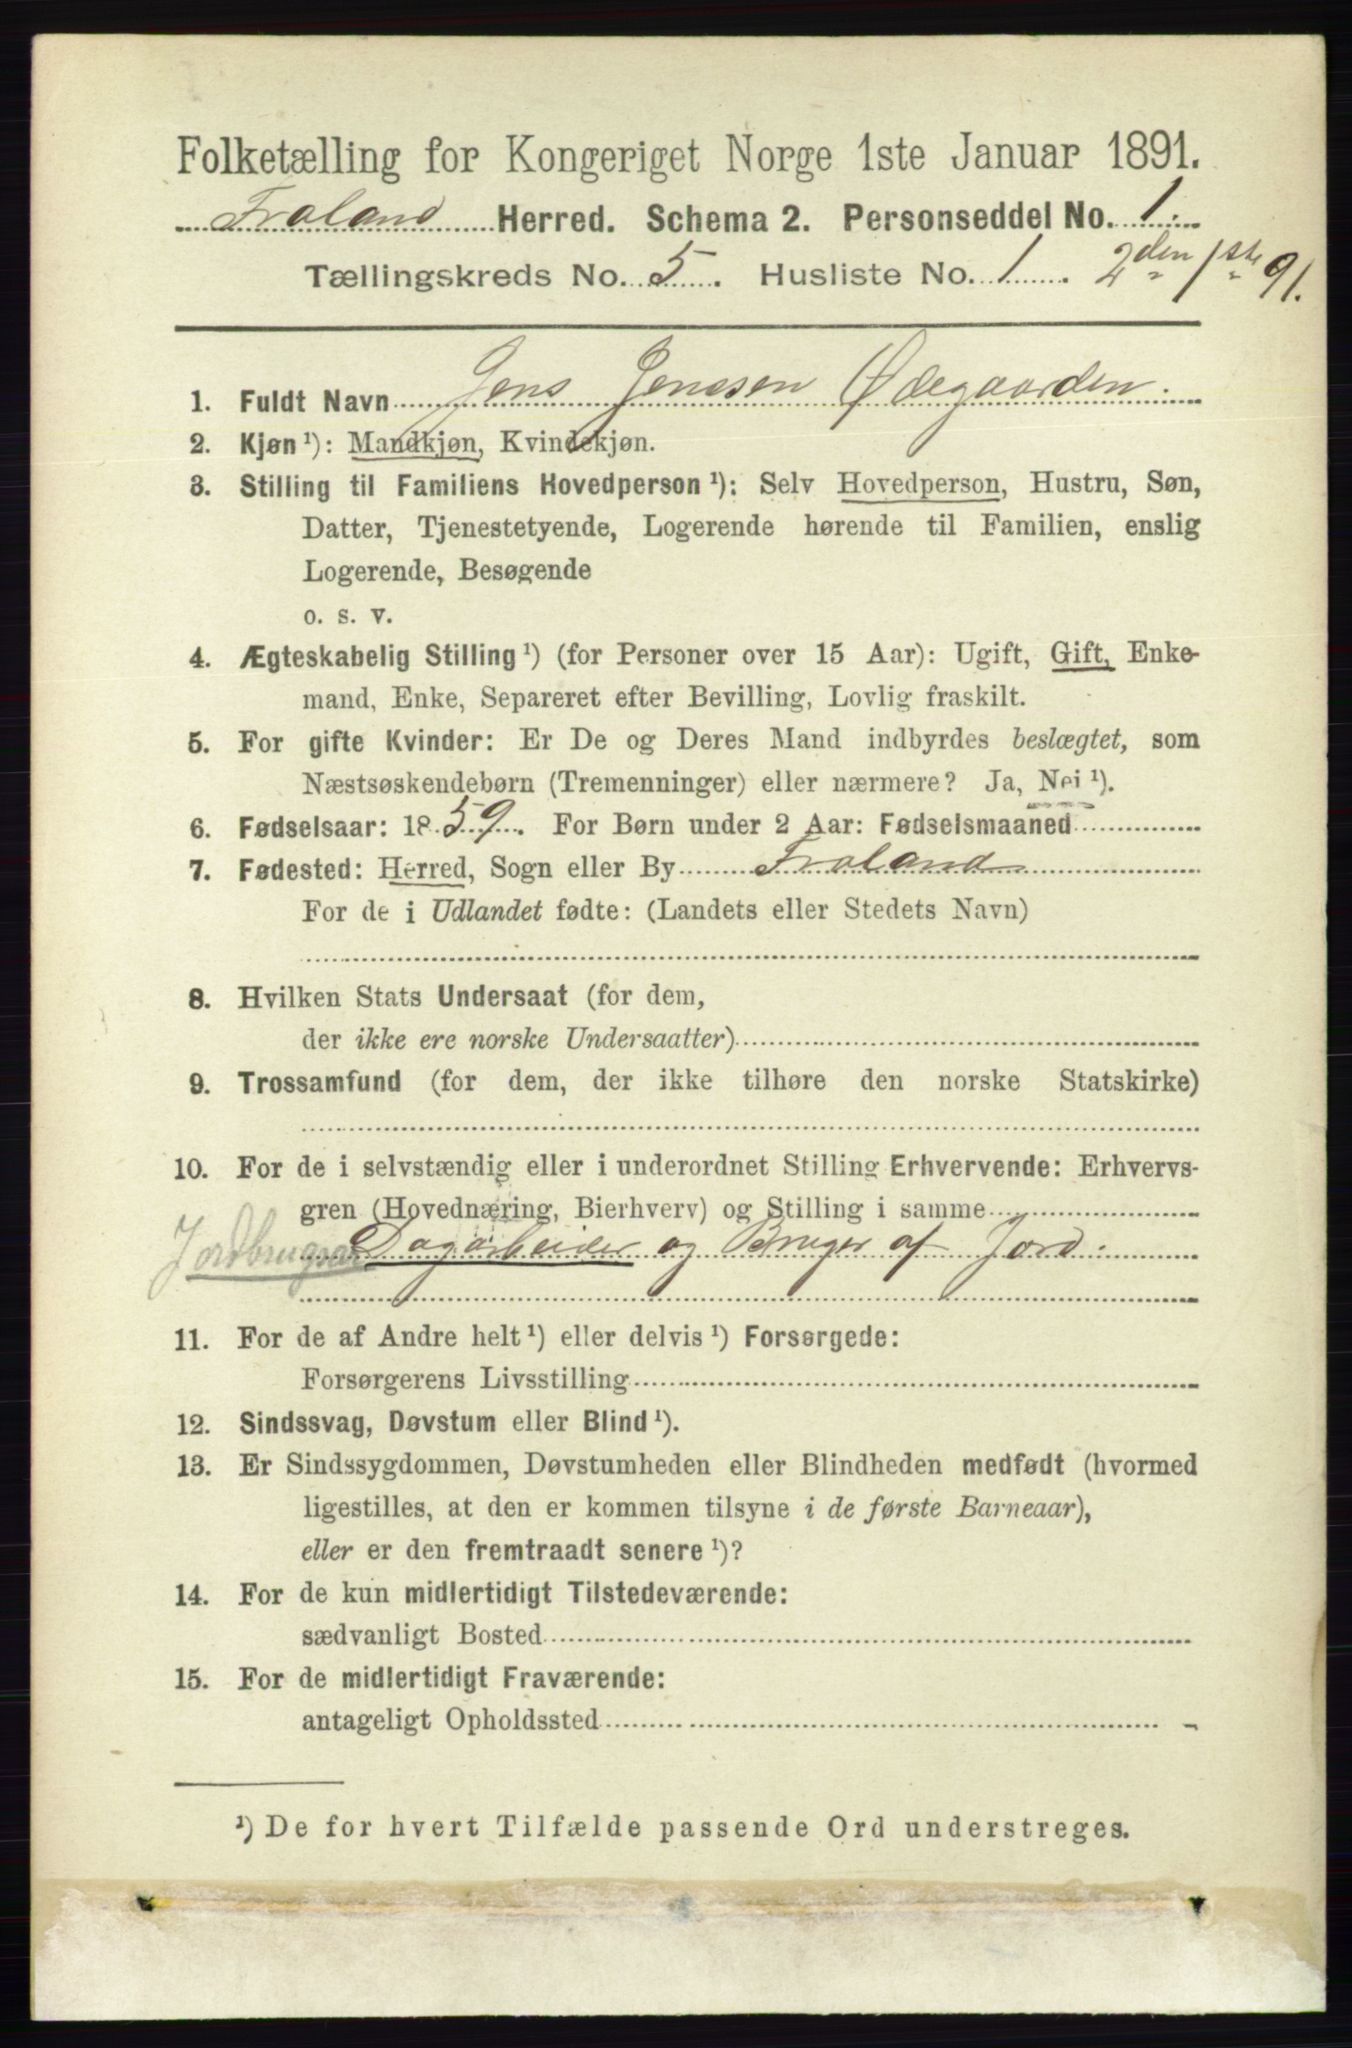 Folketælling for Kongeriget Norge 1ste Januar 1891.
Froland Herred. Schema 2. Personseddel No. 1.
Tællingskreds No. 5. Husliste No. 1. 2den 1ste 91.
1. Fuldt Navn Jens Jensen Ødegaarden.
2. Kjøn¹): Mandkjøn, Kvindekjøn.
3. Stilling til Familiens Hovedperson¹): Selv Hovedperson, Hustru, Søn,
Datter, Tjenestetyende, Logerende hørende til Familien, enslig
Logerende, Besøgende
o. s. v.
4. Ægteskabelig Stilling¹) (for Personer over 15 Aar): Ugift, Gift, Enke-
mand, Enke, Separeret efter Bevilling, Lovlig fraskilt.
5. For gifte Kvinder: Er De og Deres Mand indbyrdes beslægtet, som
Næstsøskendebørn (Tremenninger) eller nærmere? Ja, Nei¹).
6. Fødselsaar: 1859. For Børn under 2 Aar: Fødselsmaaned
7. Fødested: Herred, Sogn eller By Froland
For de i Udlandet fødte: (Landets eller Stedets Navn)
8. Hvilken Stats Undersaat (for dem,
der ikke ere norske Undersaatter)
9. Trossamfund (for dem, der ikke tilhøre den norske Statskirke)
10. For de i selvstændig eller i underordnet Stilling Erhvervende: Erhvervs-
gren (Hovednæring, Bierhverv) og Stilling i samme
Jordbrugsar Dagarbeider og Bruger af Jord.
11. For de af Andre helt¹) eller delvis¹) Forsørgede:
Forsørgerens Livsstilling
12. Sindssvag, Døvstum eller Blind¹).
13. Er Sindssygdommen, Døvstumheden eller Blindheden medfødt (hvormed
ligestilles, at den er kommen tilsyne i de første Barneaar),
eller er den fremtraadt senere¹)?
14. For de kun midlertidigt Tilstedeværende:
sædvanligt Bosted
15. For de midlertidigt Fraværende:
antageligt Opholdssted
¹) De for hvert Tilfælde passende Ord understreges.